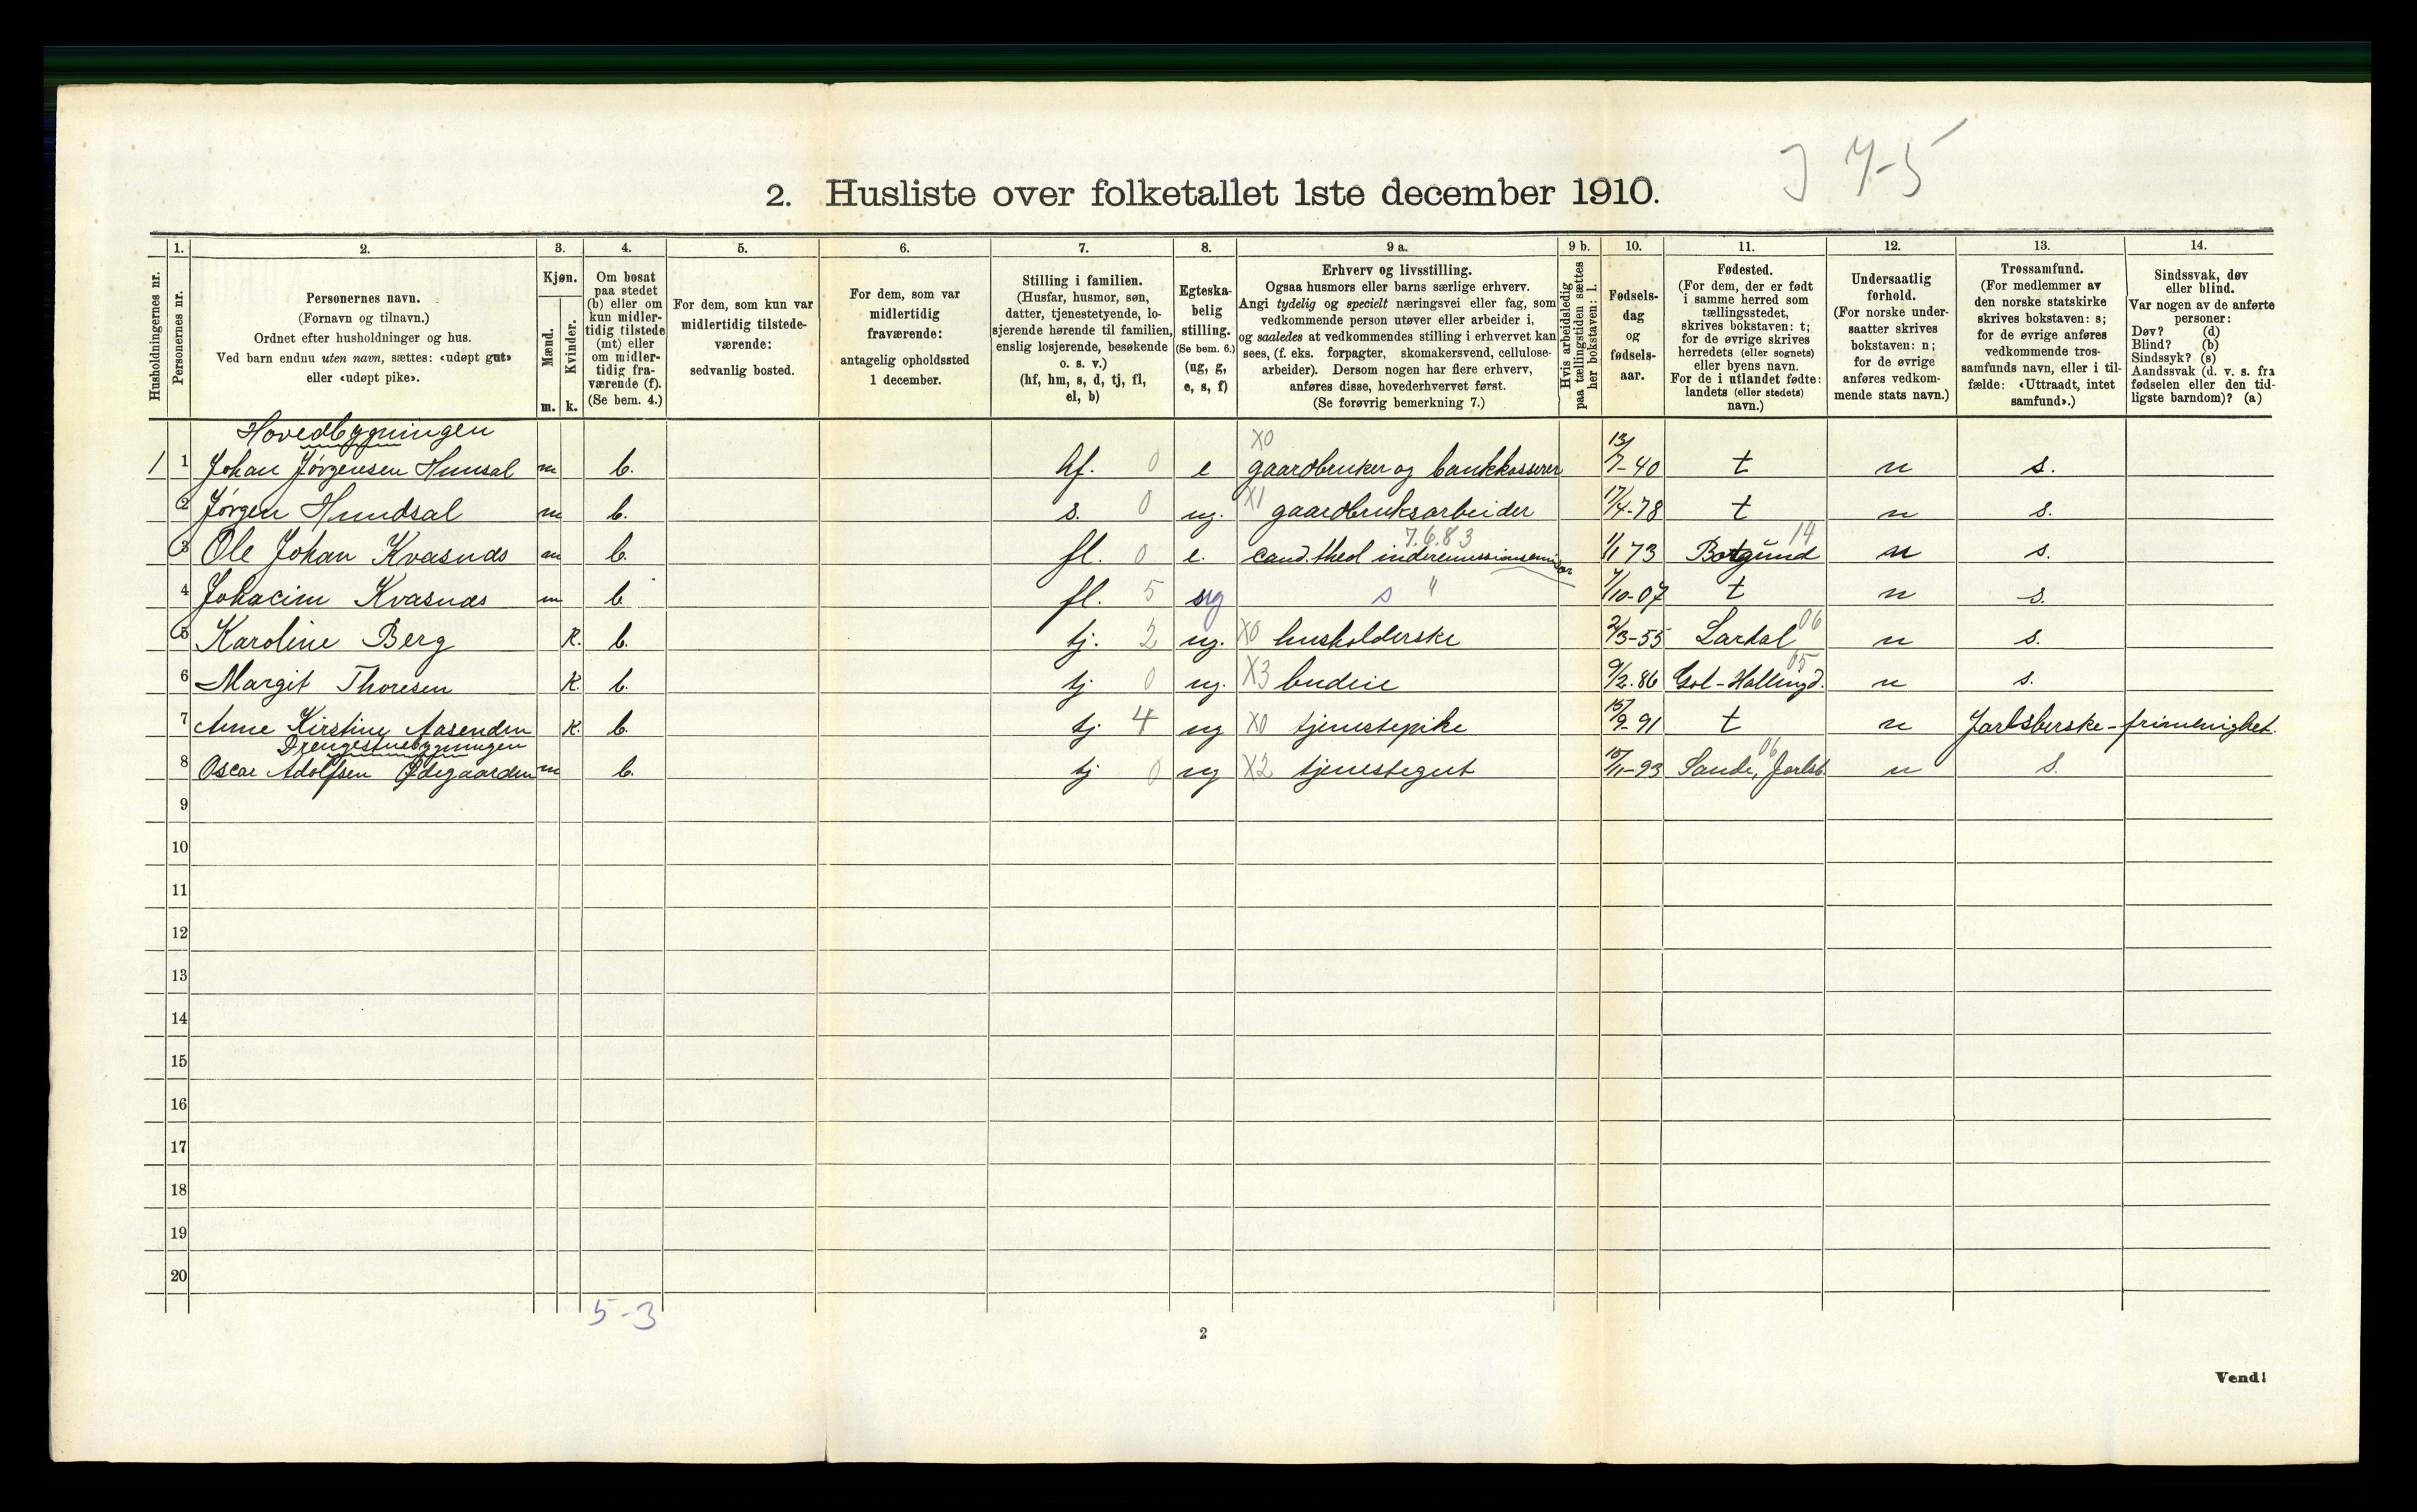 J 4-5
2. Husliste over folketallet 1ste december 1910.
Husholdningernes nr.
1.
Personernes nr.
2.
Personernes navn.
(Fornavn og tilnavn.)
Ordnet efter husholdninger og hus.
Ved barn endnu uten navn, sættes: «udøpt gut»
eller «udøpt pike».
3.
Kjøn.
Mænd.
Kvinder.
m. k.
4.
Om bosat
paa stedet
(b) eller om
kun midler-
tidig tilstede
(mt) eller
om midler-
tidig fra-
værende (f).
(Se bem. 4.)
5.
For dem, som kun var
midlertidig tilstede-
værende:
sedvanlig bosted.
6.
For dem, som var
midlertidig
fraværende:
antagelig opholdssted
1 december.
7.
Stilling i familien.
(Husfar, husmor, søn,
datter, tjenestetyende, lo-
sjerende hørende til familien,
enslig losjerende, besøkende
o. s. v.)
(hf, hm, s, d, tj, fl,
el, b)
8.
Egteska-
belig
stilling.
(Se bem. 6.)
(ug, g,
e, s, f)
9 a.
Erhverv og livsstilling.
Ogsaa husmors eller barns særlige erhverv.
Angi tydelig og specielt næringsvei eller fag, som
vedkommende person utøver eller arbeider i,
og saaledes at vedkommendes stilling i erhvervet kan
sees, (f. eks. forpagter, skomakersvend, cellulose-
arbeider). Dersom nogen har flere erhverv,
anføres disse, hovederhvervet først.
(Se forøvrig bemerkning 7.)
9 b.
Hvis arbeidsledig
paa tællingstiden sættes
her bokstaven: l.
10.
Fødsels-
dag
og
fødsels-
aar.
11.
Fødested.
(For dem, der er født
i samme herred som
tællingsstedet,
skrives bokstaven: t;
for de øvrige skrives
herredets (eller sognets)
eller byens navn.
For de i utlandet fødte:
landets (eller stedets)
navn.)
12.
Undersaatlig
forhold.
(For norske under-
saatter skrives
bokstaven: n;
for de øvrige
anføres vedkom-
mende stats navn.)
13.
Trossamfund.
(For medlemmer av
den norske statskirke
skrives bokstaven: s;
for de øvrige anføres
vedkommende tros-
samfunds navn, eller i til-
fælde: «Uttraadt, intet
samfund».)
14.
Sindssvak, døv
eller blind.
Var nogen av de anførte
personer:
Døv? (d)
Blind? (b)
Sindssyk? (s)
Aandssvak (d. v. s. fra
fødselen eller den tid-
ligste barndom)? (a)
Hovedbygningen
1 1 Johan Jørgensen Hunsal m b. hf. 0 e X0 gaardbruker og bankkasserer 13/7-40 t n s.
2 Jørgen Hundsal m b. s. 0 ug. X1 gaardbruksarbeider 17/4-78 t n s.
3 Ole Johan Kvasnæs m b. fl. 0 e. 7.6.83 cand. theol 1/1 73 Borgund 14 n s.
4 Johacim Kvasnæs m b. fl. 5 ug s " 7/10-07 t n s.
5 Karoline Berg k. b. tj. 2 ug. X0 husholderske 2/3-55 Lardal 06 n s.
6 Margit Thoresen k. b. tj 0 ug. X3 budeie 9/2-86 Gol-Hallingd. 05 n s.
7 Anne Kirstine Aasenden k. b. tj 4 ug X0 tjenestepike 15/9-91 t n Jarlsberske-frimenighet.
Drengestuebygningen
8 Oscar Adolfsen Ødegaarden m b. tj 0 ug X2 tjenestegut 15/11-93 Sande, Jarlsb. 06 n s.
9
10
11
12
13
14
15
16
17
18
19
20
5-3
2
Vend!